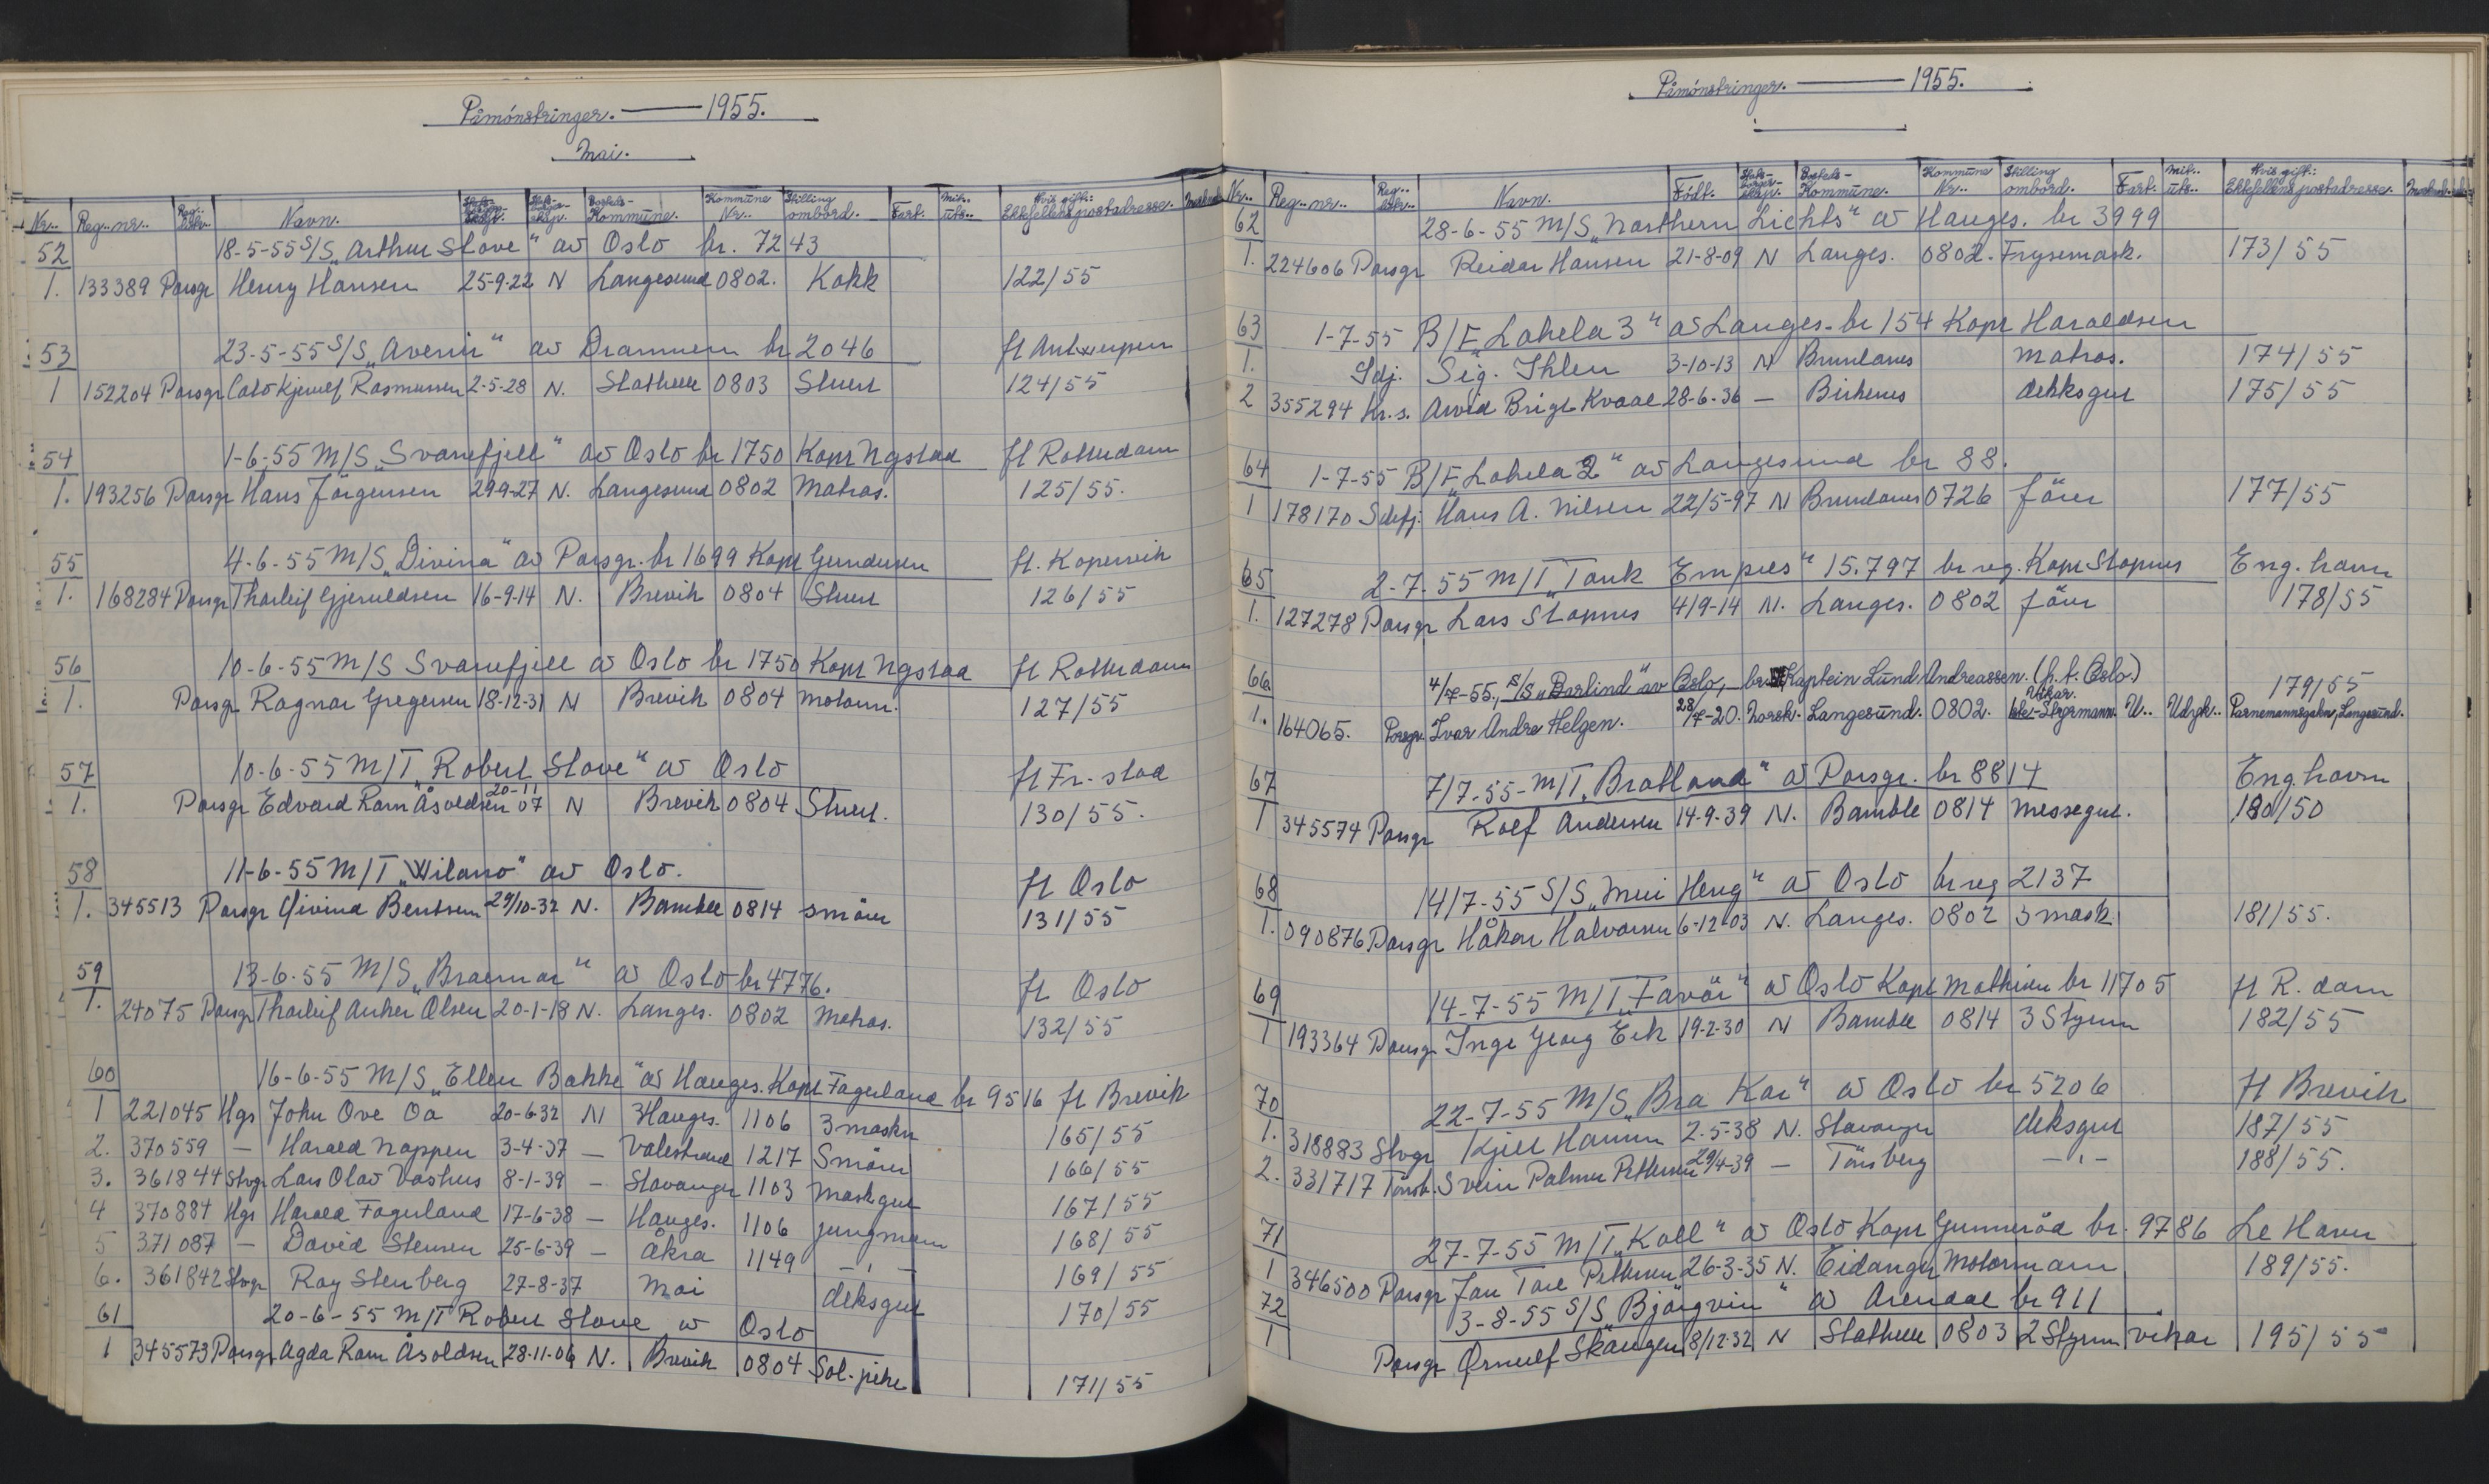 Påmönstringer. — 1955.
Mai.
Nr.. Reg.. nr.. Navn. Bosteds- Kommune. Kommune Nr.. Stilling ombord. Fart. Hvis gift: Ektefellens postadresse.
52 18-5-55 S/S „Arthur Stove“ av Oslo br. 7243
1. 133389 Porsgr Henry Hansen 25-9-22 N Langesund 0802. Kokk 122/55
53 23-5-55 S/S „Avenir“ av Drammen br 2046 ft Antwerpen
1 152204 Porsgr Kjerulf Rasmussen 2-5-28 N. Stathelle 0803 Stuert 124/55
54 1-6-55 M/S „Svanefjell“ av Oslo br 1750 Kapt Ngstad ft Rotterdam
1. 193256 Porsgr Hans Jörgensen 29-9-27 N. Langesund 0802 Matros. 125/55.
55 4-6-55 M/S „Divina“ av Porsgr. br 1699 Kapt Gundersen ft. Kopervik
1. 168284 Porsgr Thorleif Gjeruldsen 16-9-14 N. Brevik 0804 Stuert 126/55
56 10-6-55 M/S Svanefjell av Oslo br 1750 Kapt Ngstad ft Rotterdam
1. Porsgr Ragnar Gregersen 18-12-31 N Brevik 0804 motorm. 127/55
57 10-6-55 M/T „Robert Stove“ av Oslo ft Fr.-stad
1. Porsgr Edvard Ram Åsoldsen 20-11 07 N Brevik 0804 Stuert. 130/55.
58 11-6-55 M/T „Wilano“ av Oslo. ft Oslo
1. 345513 Porsgr Öivind Bentsen 29/10-32 N. Bamble 0814 smörer 131/55
59 13-6-55 M/S „Braemar“ av Oslo br 4776. ft Oslo
1. 24075 Porsgr Thorleif Anker Olsen 20-1-18 N. Langes. 0802 Matros. 132/55
60 16-6-55 M/S „Ellen Bakke“ av Hauges. Kapt Fagerland br 9516 ft Brevik
1 221045 Hgs John Ove Oa 20-6-32 N Hauges. 1106 3 maskn 165/55
2. 370559 — Harald Nappen 3-4-37 — Valestrand 1217 Smörer 166/55
3. 361844 Stvgr Lars Olav Vashus 8-1-39 — Stavanger 1103 Maskgut 167/55
4 370884 Hgs Harald Fagerland 17-6-38 — Hauges. 1106 jungmann 168/55
5 371087 — David Stensen 25-6-39 — Åkra 1149 — " — 169/55
6. 361842 Stvgr Roy Stenberg 27-8-37 Moi deksgut 170/55
61 20-6-55 M/T Robert Stove av Oslo
1 345573 Porsgr Agda Ram Åsoldsen 28-11-06 N. Brevik 0804 Sal.-pike 171/55
Påmönstringer. — 1955.
Nr.. Reg.. nr.. Navn. Födt. Bosteds- Kommune. Kommune Nr.. Stilling ombord. Fart. Hvis gift: Ektefellens postadresse.
62 28-6-55 M/S „Northern Lichts“ av Hauges. br 3999
1. 224606 Porsgr Reidar Hansen 21-8-09 N Langes. 0802. Frysemask. 173/55
63 1-7-55 B/F „Lakela 3“ av Langes. br 154 Kapt Haraldsen
1. Sdj. Sig. Ihlen 3-10-13 N Brunlanes matros. 174/55
2 355294 Kr.s. Arvid Brigt Kvaal 28-6-36 — Birkenes dekksgut 175/55
64 1-7-55 B/F „Lakela 2“ av Langesund br 88.
1 178170 Sdefj. Hans A. Nilsen 22/5-97 N Brunlanes 0726 förer 177/55
65 2-7-55 M/T „Tank Empres“ 15.797 br reg. Kapt Stapnes Eng. havn
1. 127278 Porsgr Lars Stapnes 4/9-14 N. Langes. 0802 förer 178/55
66 4/7-55, S/S „Borlind“ av Oslo, - br. Kaptein Lund Andreassen. (p.t. Oslo.) 179/55
1. 164065. Porsgr. Ivar Andre Helgen. 28/7-20. Norsk. Langesund. 0802. Vikar. Styrmann. U.. Utryk.. Parnemannsgaten, Langesund.
67 7/7-55- M/T „Bratland“ av Porsgr. br 8814 Eng. havn
1 345574 Porsgr Rolf Andersen 14-9-39 N. Bamble 0814 messegut. 180/50
68 14/7-55 S/S „Mui Heng“ av Oslo br reg 2137
1. 090876 Porsgr Håkon Halvorsen 6-12-03 N. Langes. 0802 3 mask 181/55.
69 14-7-55 M/T „Favör“ av Oslo Kapt Mathisen br 11705 ft R. dam
1 193364 Porsgr Inge Georg Eek 19-2-30 N Bamble 0814 3 Styrm 182/55
70 22-7-55 M/S „Bra Kar“ av Oslo br 5206 ft Brevik
1. 318883 Stvgr Kjell Hamm 2-5-38 N. Stavanger deksgut 187/55
2. 331717 Tönsb. Svein Palmer Pettersen 29/4-39 — Tönsberg — " — 188/55.
71 27-7-55 M/T „Koll“ av Oslo Kapt Gunneröd br. 9786 Le Havre
1 346500 Porsgr Jan Tore Pettersen 26-3-35 N. Eidanger Motormann 189/55.
72 3-8-55 S/S „Björgvin“ av Arendal br 911
1 Porsgr Ørnulf Skaugen 8/12-32 N Stathelle 0803 2 Styrm vikar 195/55